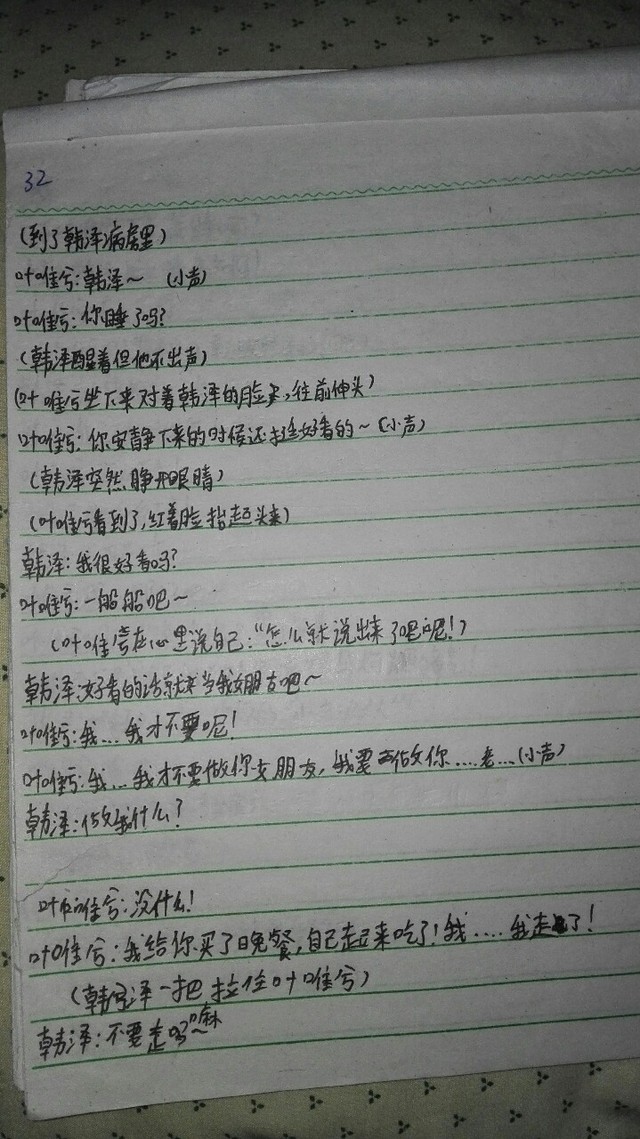 32
(到了韩泽病房里)
叶唯兮:韩泽~ (小声)
叶唯兮:你睡了吗?
(韩泽醒着但他不出声)
(叶唯兮坐下来对着韩泽的脸,往前伸头)
叶唯兮:你安静下来的时候还挺好看的~(小声)
(韩泽突然睁开眼睛)
(叶唯兮看到了,红着脸抬起头来)
韩泽:我很好看吗?
叶唯兮:一般般吧~
(叶唯兮在心里说自己:“怎么就说出来了呢!)
韩泽:好看的话就来当我女朋友吧~
叶唯兮:我...我才不要呢!
叶唯兮:我...我才不要做你女朋友,我要做你....老...(小声)
韩泽:做我什么?
叶唯兮:没什么!
叶唯兮:我给你买了晚餐,自己起来吃了!我....我走了!
(韩泽一把拉住叶唯兮)
韩泽:不要走嘛~